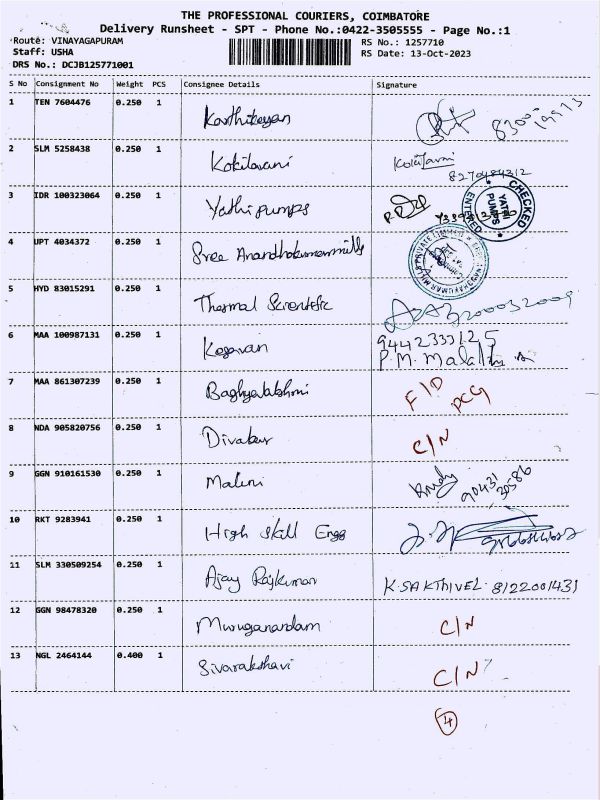 THE PROFESSIONAL COURIERS, COIMBATORE
Delivery Runsheet - SPT - Phone No.:0422-3505555 - Page No.:1
Route: VINAYAGAPURAM
Staff: USHA
DRS No.: DCJB125771001
RS No.: 1257710
RS Date: 13-Oct-2023
S No Consignment No Weight PCS Consignee Details Signature
1 TEN 7604476 0.250 1 Karthikeyan
2 SLM 5258438 0.250 1 Kokilavani 8270484312
3 IDR 100323064 0.250 1 Yathi pumps
CHECKED
YATHI PUMPS
ENTERED
4 UPT 4034372 0.250 1 Sree Anandhakumarmills
5 HYD 83015291 0.250 1 Thermal Scientific
6 MAA 100987131 0.250 1 Kesavan 9442333125
P.M.
7 MAA 861307239 0.250 1 Baghyalakshmi F/D PCG
8 NDA 905820756 0.250 1 Divakar C/N
9 GGN 910161530 0.250 1 Malini 90431
10 RKT 9283941 0.250 1 High Skill Engg
11 SLM 330509254 0.250 1 Ajay Rajkumar K.SAKTHIVEL. 8122001431
12 GGN 98478320 0.250 1 Muruganandam C/N
13 NGL 2464144 0.400 1 Sivarakshavi C/N
4